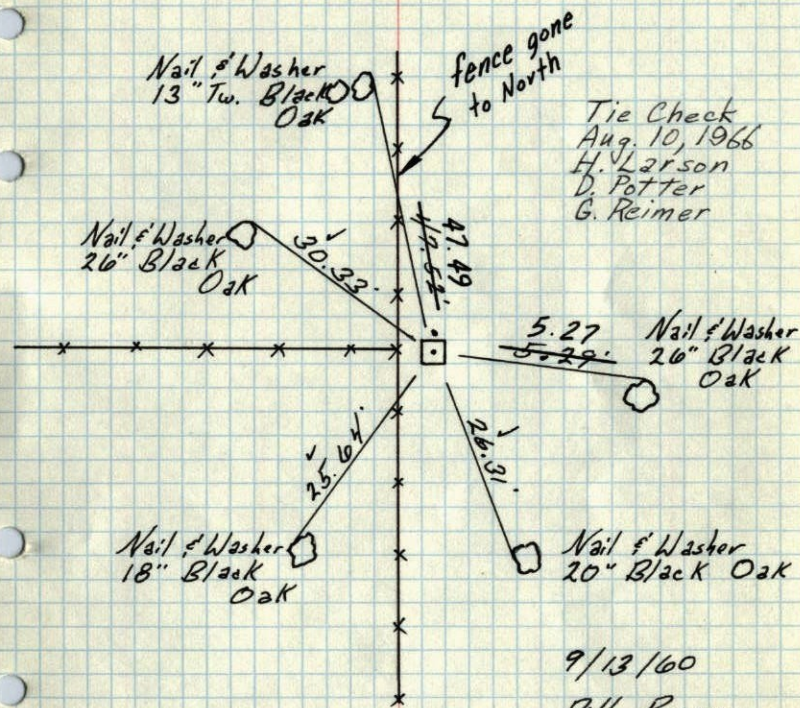 fence gone
to North
Nail & Washer
13" Tw. Black
Oak
Tie Check
Aug. 10, 1966
H. Larson
D. Potter
G. Reimer
Nail & Washer
26" Black
Oak
30.33'
47.49
47.52'
5.27
5.29'
Nail & Washer
26" Black
Oak
25.64'
26.31'
Nail & Washer
18" Black
Oak
Nail & Washer
20" Black Oak
9/13/60